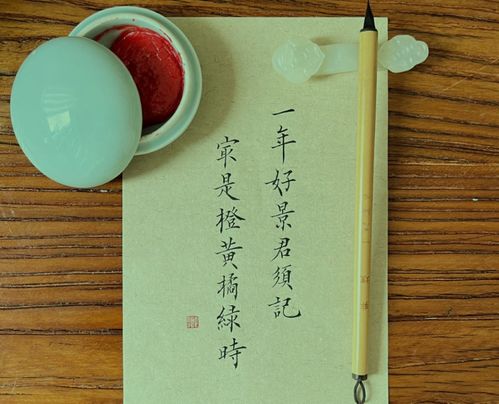 一年好景君須記
冣是橙黃橘綠時